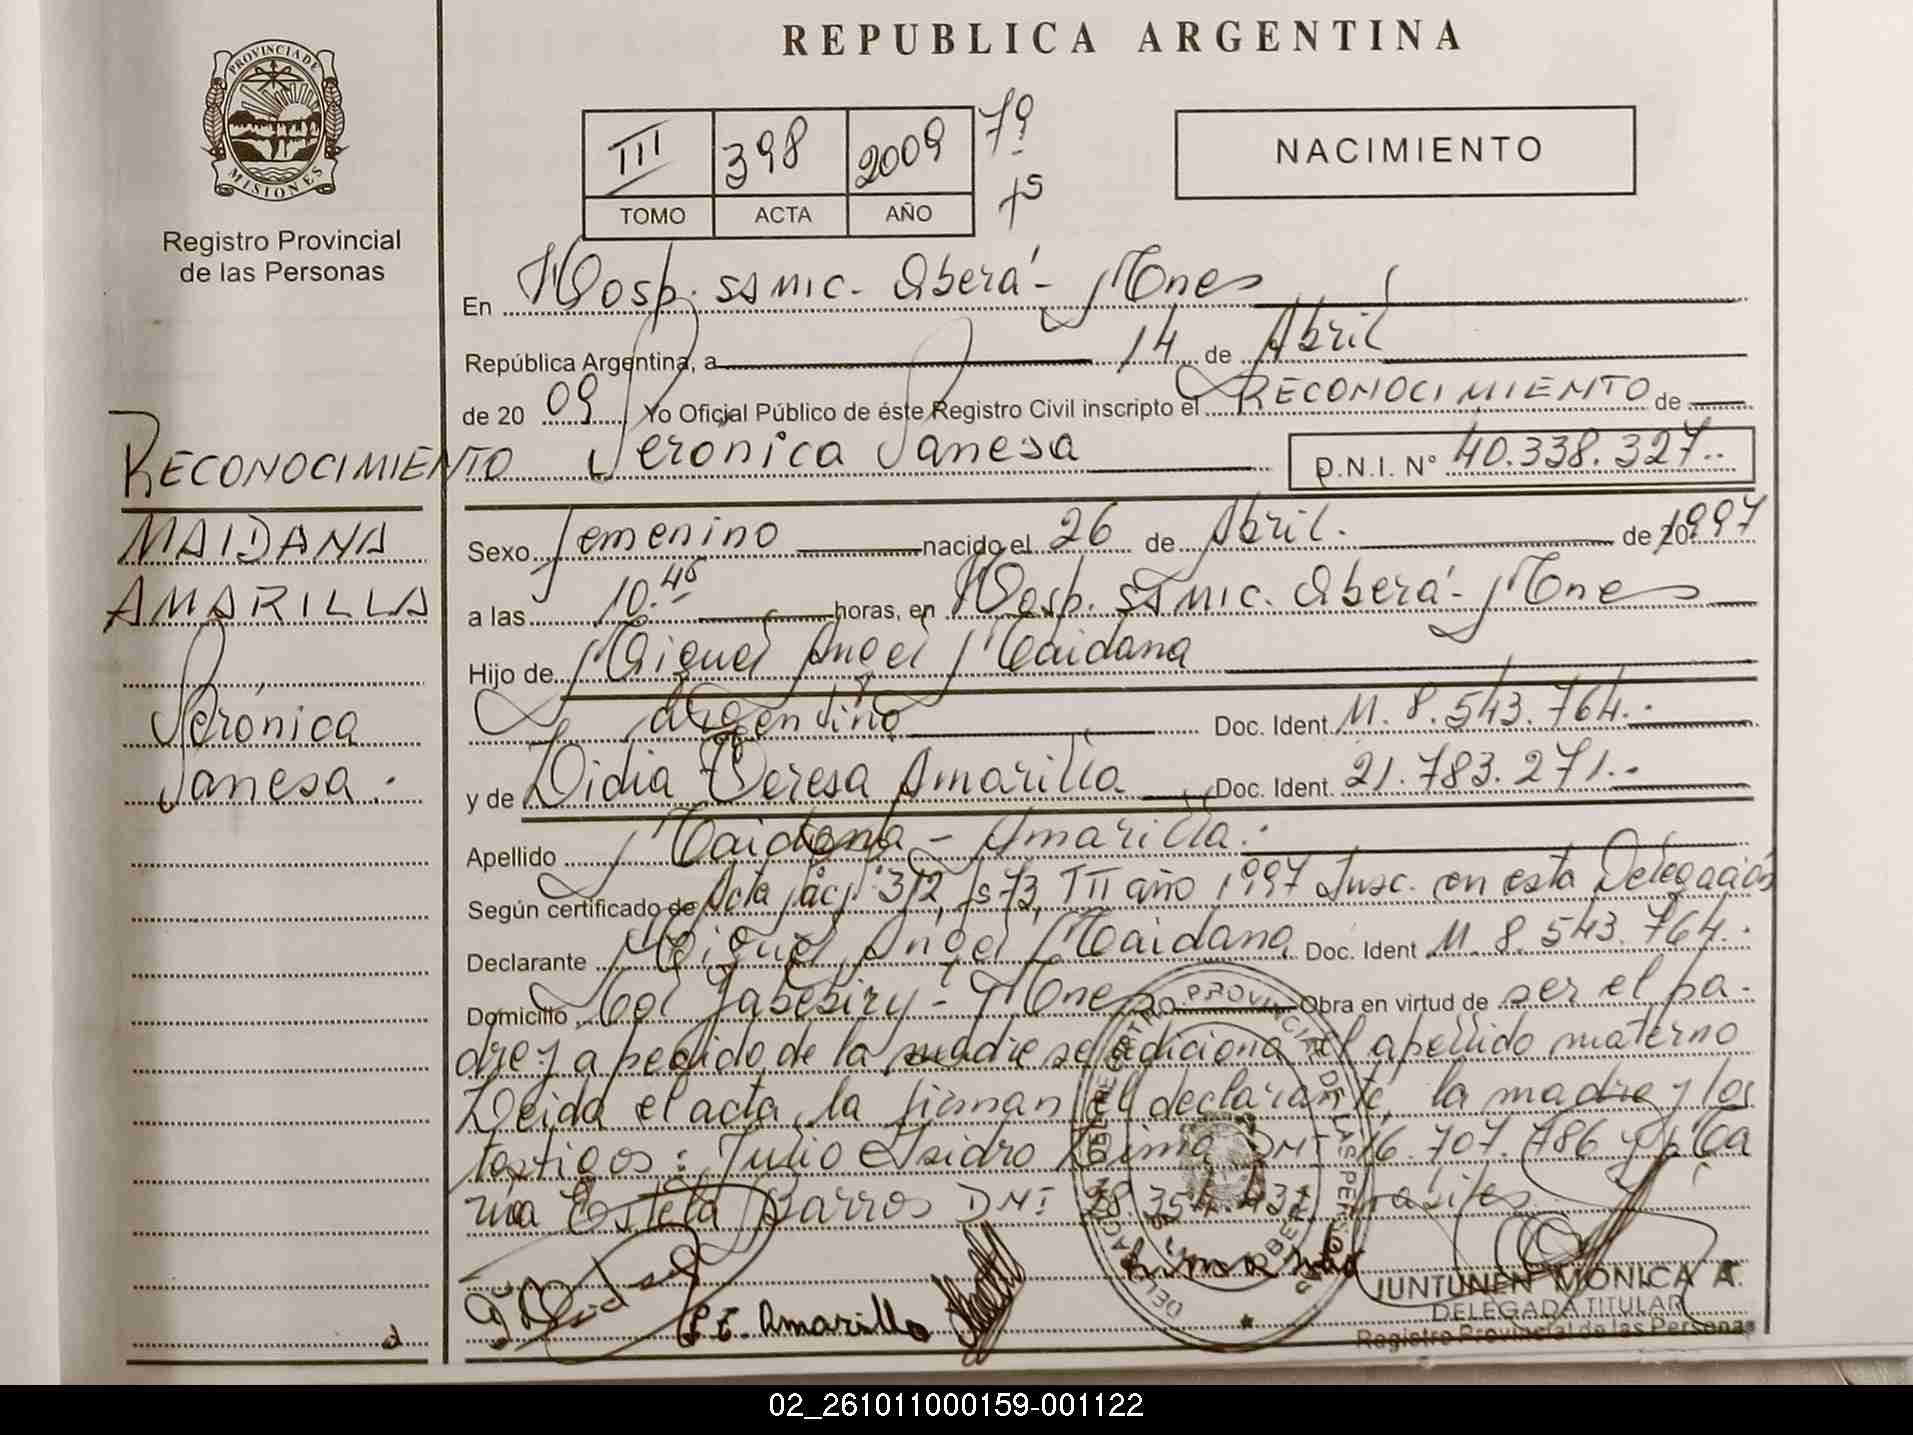 REPUBLICA ARGENTINA
PROVINCIA DE MISIONES
Registro Provincial
de las Personas
III 398 2009 79
TOMO ACTA AÑO
NACIMIENTO
En Hosp. SAMIC. Oberá - Mnes
República Argentina, a 14 de Abril
de 20 09 Yo Oficial Público de éste Registro Civil inscripto el RECONOCIMIENTO de
Verónica Vanesa D.N.I. N° 40.338.327..
RECONOCIMIENTO
MAIDANA
AMARILLA
Verónica
Vanesa.
Sexo femenino nacido el 26 de Abril. de 20 1997
a las 10.45 horas, en Hosp. SAMIC. Oberá - Mnes
Hijo de Miguel Angel Maidana
argentino Doc. Ident. M. 8.543.764.-
y de Lidia Teresa Amarilla Doc. Ident. 21.783.271.-
Apellido Maidana - Amarilla.
Según certificado de Acta 312, fs 73, TII año 1997 Insc. en esta Delegación
Declarante Miguel Angel Maidana Doc. Ident M. 8.543.764.-
Domicilio Col Yabebiry - Mnes Obra en virtud de ser el pa-
dre y a pedido de la madre se adiciona el apellido materno
Leida el acta, la firman el declarante, la madre y los
testigos: Julio Isidro Lima DNI 16.707.786 y Ma
ria Estela Barros DNI 28.354.432
Amarilla
JUNTUNEN MONICA A.
DELEGADA TITULAR
Registro Provincial de las Personas
REGISTRO PROVINCIAL DE LAS PERSONAS
02_261011000159-001122